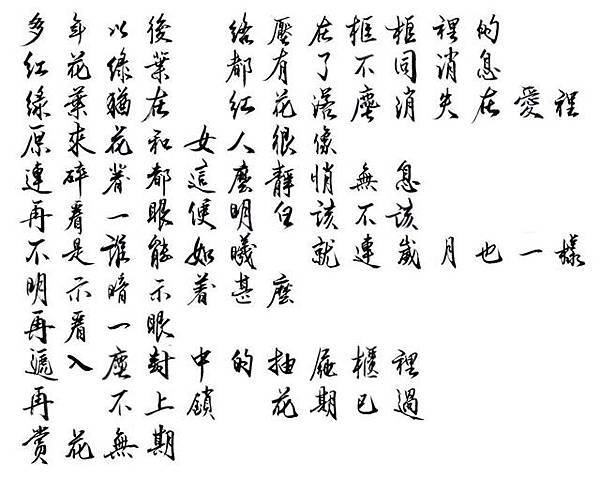 多年以後 給壓在框框裡的
紅花綠葉 都有了不同消息
綠葉猶在 紅花塵消失在愛裡
原來花和女人很像
連碎都這麼靜悄無息
再看一眼便明白該不該
不是誰能如曦 就連歲月也一樣
明示暗示着甚麼
再看一眼
遞入塵封中的抽屜櫃裡
再不上鎖 花期已過
賞花無期